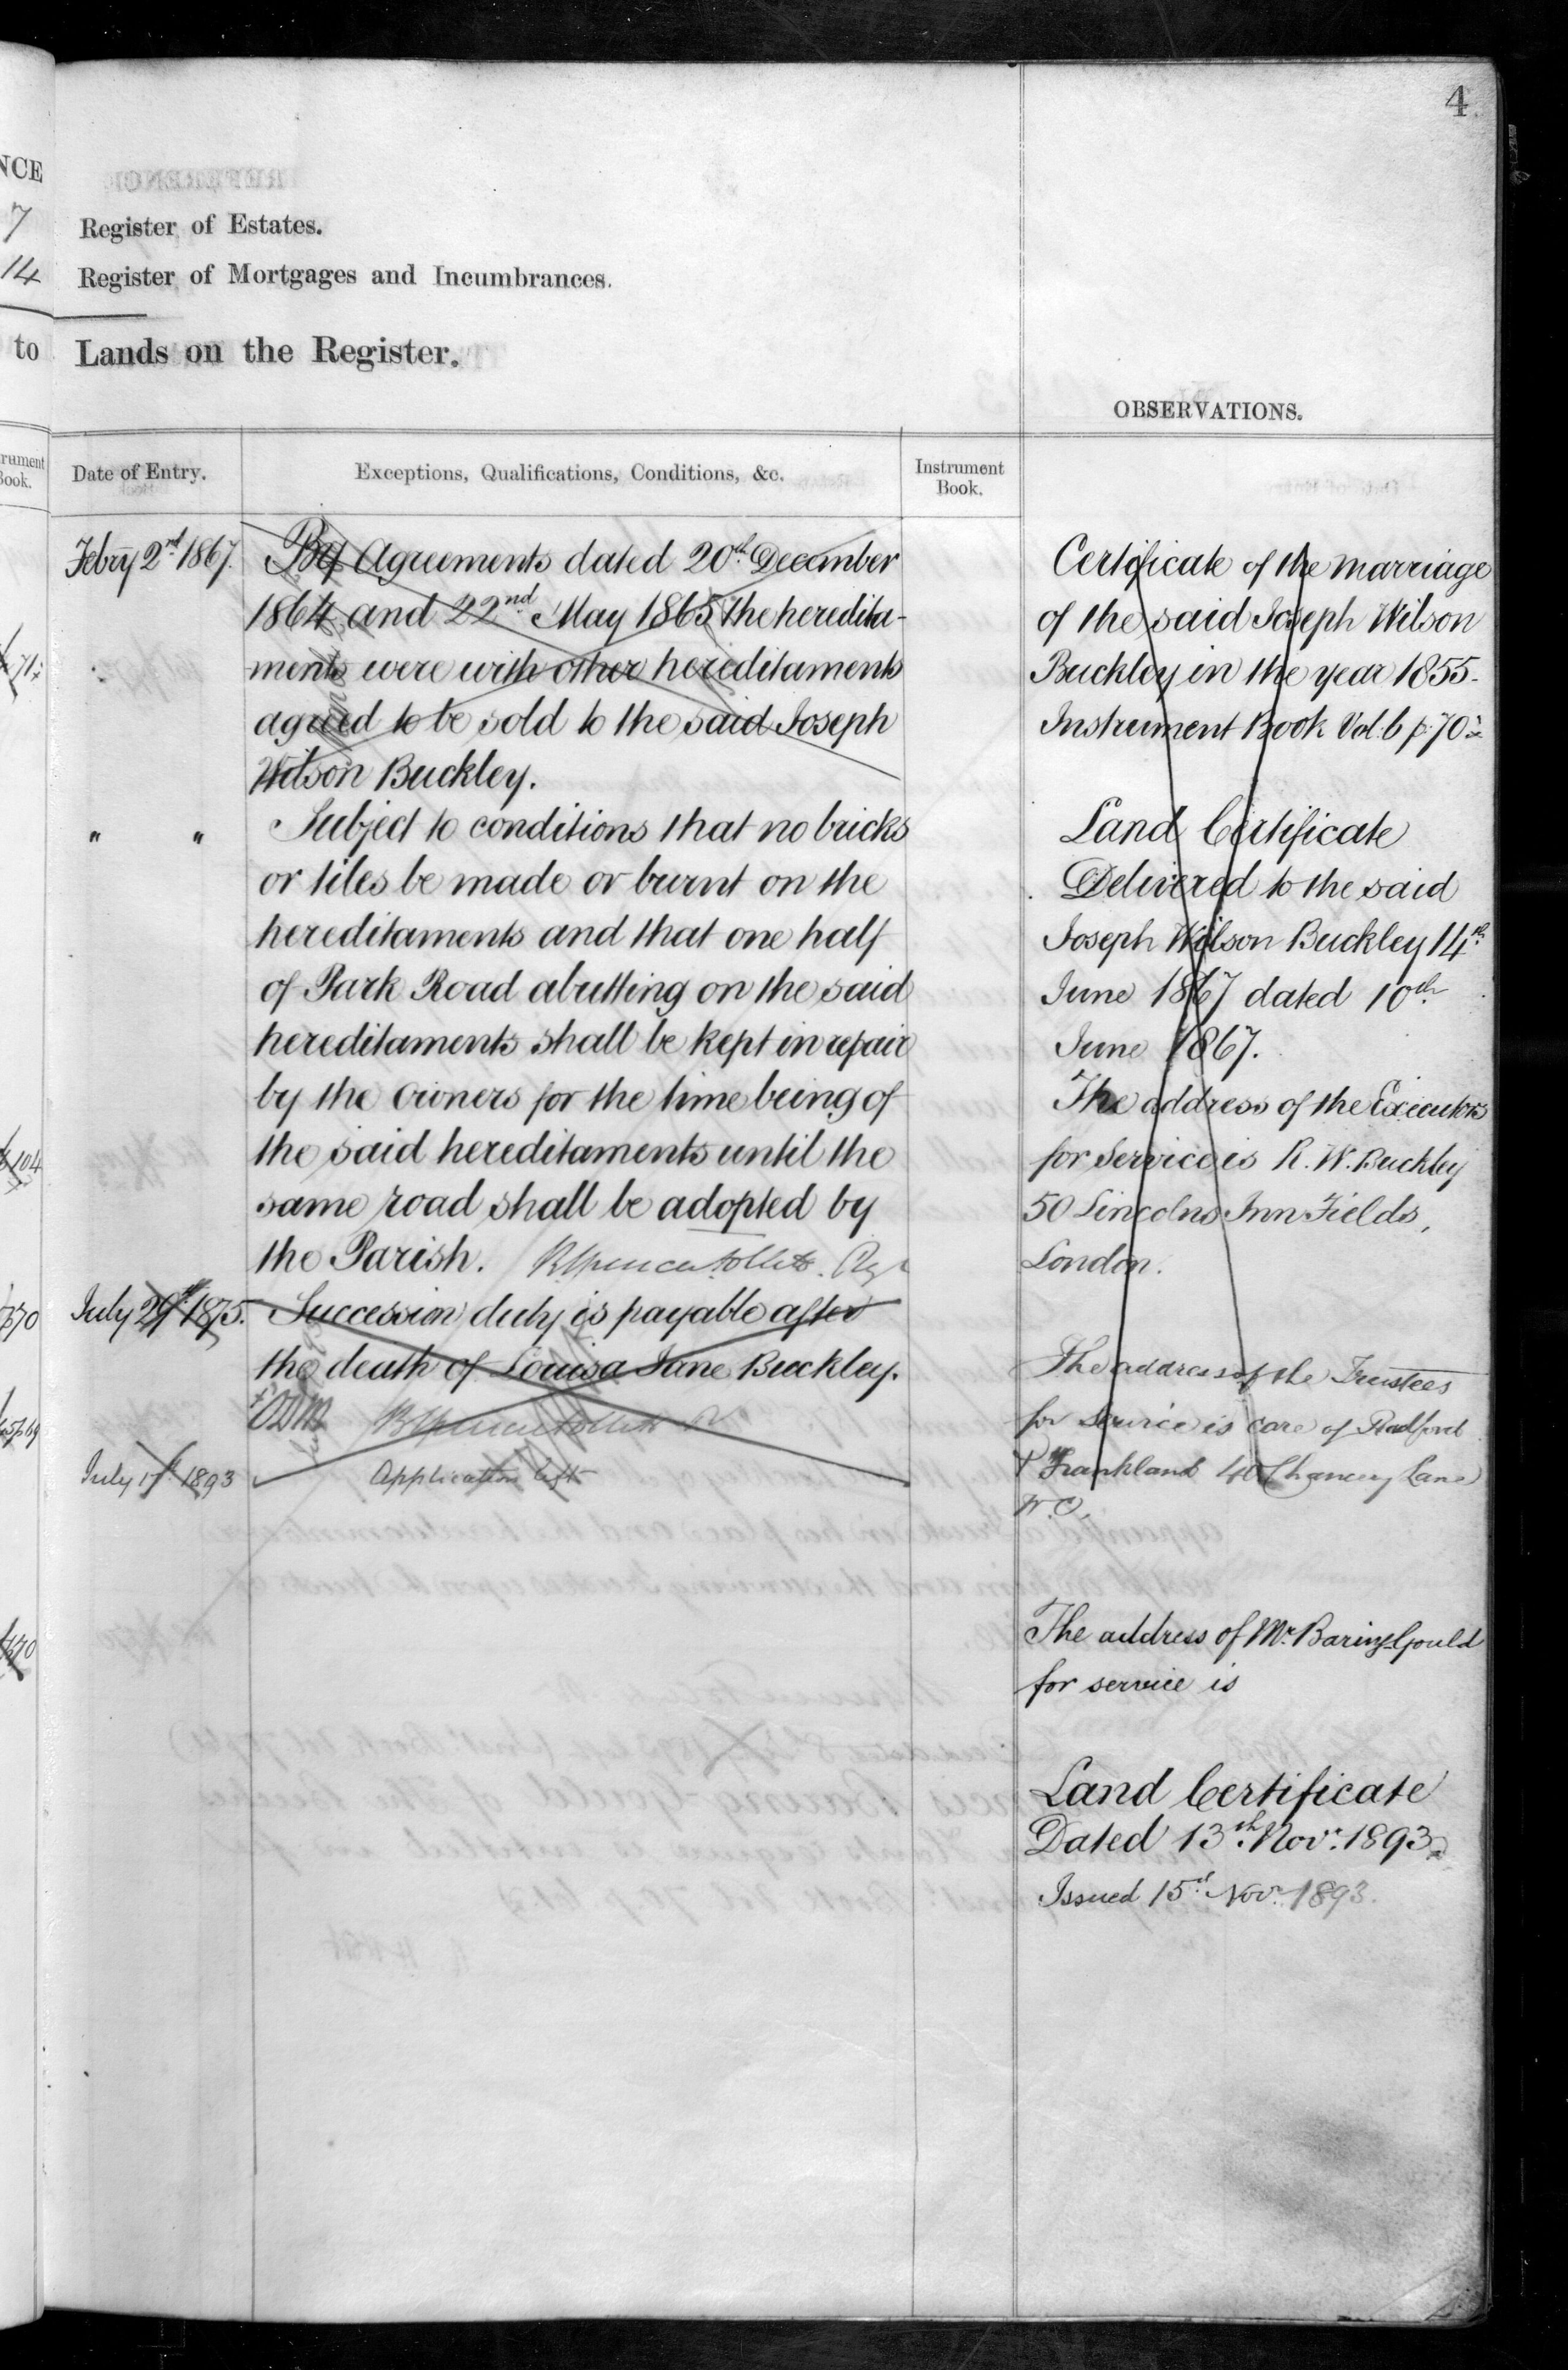 4
NCE
7
Register of Estates.
14
Register of Mortgages and Incumbrances.
to Lands on the Register.
OBSERVATIONS.
Book.
Date of Entry.
Exceptions, Qualifications, Conditions, &c.
Instrument
Book.
Febry 2nd 1867.
By Agreements dated 20th December
1864 and 22nd May 1865 the heredita-
ments were with other hereditaments
agreed to be sold to the said Joseph
Wilson Buckley.
" "
Subject to conditions that no bricks
or tiles be made or burnt on the
hereditaments and that one half
of Park Road abutting on the said
hereditaments shall be kept in repair
by the owners for the time being of
the said hereditaments until the
same road shall be adopted by
the Parish.
July 29th 1875.
Succession duty is payable after
the death of Louisa Jane Buckley.
July 17th 1893
Application left
Certificate of the marriage
of the said Joseph Wilson
Buckley in the year 1855.
Instrument Book Vol: 6 p: 70
Land Certificate
Delivered to the said
Joseph Wilson Buckley 14th
June 1867 dated 10th
June 1867.
The address of the Executors
for service is R. W. Buckley
50 Lincolns Inn Fields,
London.
The address of the Trustees
for service is care of Radford
& Frankland Chancery Lane
W.C.
The address of Mr. Baring-Gould
for service is
Land Certificate
Dated 13th Novr. 1893.
Issued 15th Novr. 1893.